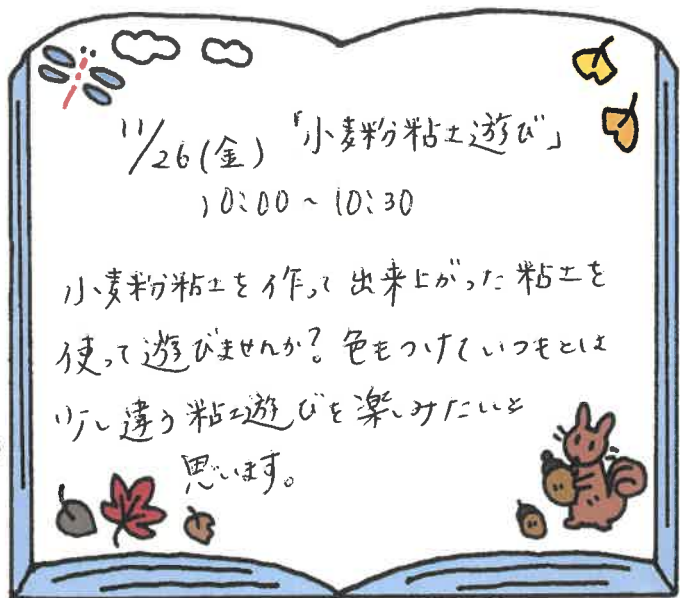 11/26(金)「小麦粉粘土遊び」
10:00~10:30
小麦粉粘土を作って出来上がった粘土を
使って遊びませんか?色もつけていつもとは
少し違う粘土遊びを楽しみたいと
思います。